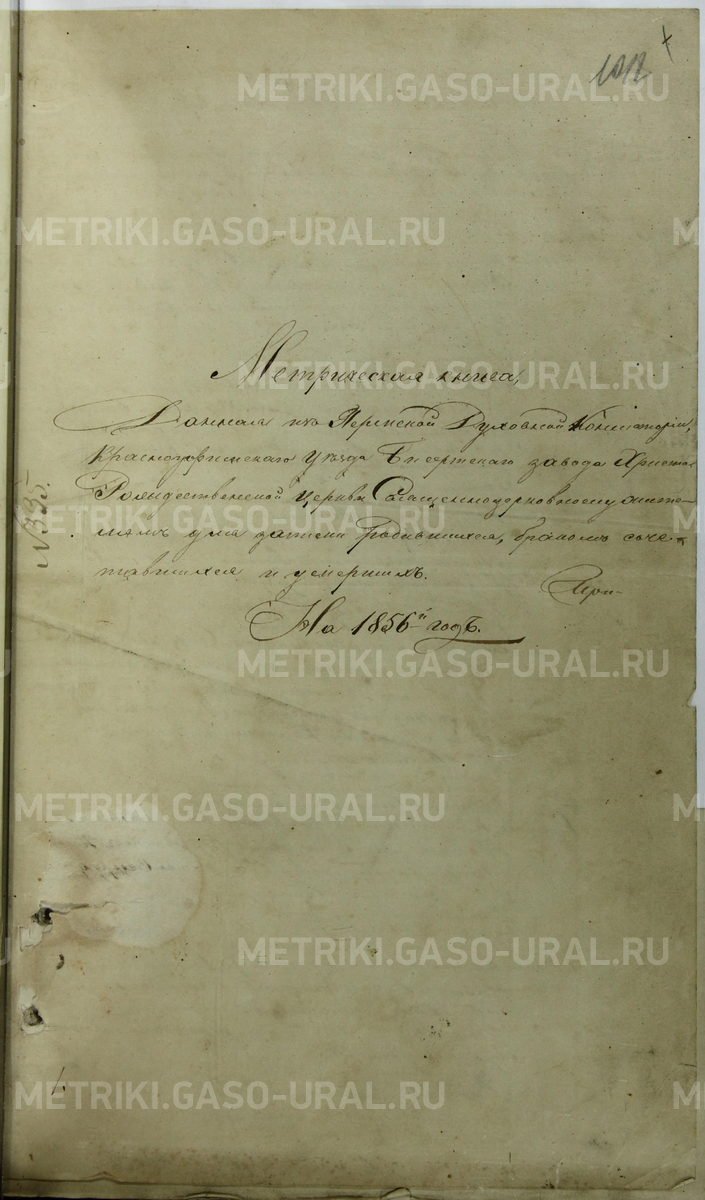 1012
METRIKI.GASO-URAL.RU
METRIKI.GASO-URAL.RU
Метрическая книга,
METRIKI.GASO-URAL.RU
Данная изъ Пермской Духовной Консисторіи,
Красноуфимскаго уѣзда Бисертскаго завода Христо
METRIKI.GASO-URAL.RU
Рождественской церкви Священноцерковнослужите-
лямъ для записки родившихся, бракомъ соче-
тавшихся и умершихъ.
При-
№ 335.
На 1856й годъ.
METRIKI.GASO-URAL.RU
METRIKI.GASO-URAL.RU
METRIKI.GASO-URAL.RU
METRIKI.GASO-URAL.RU